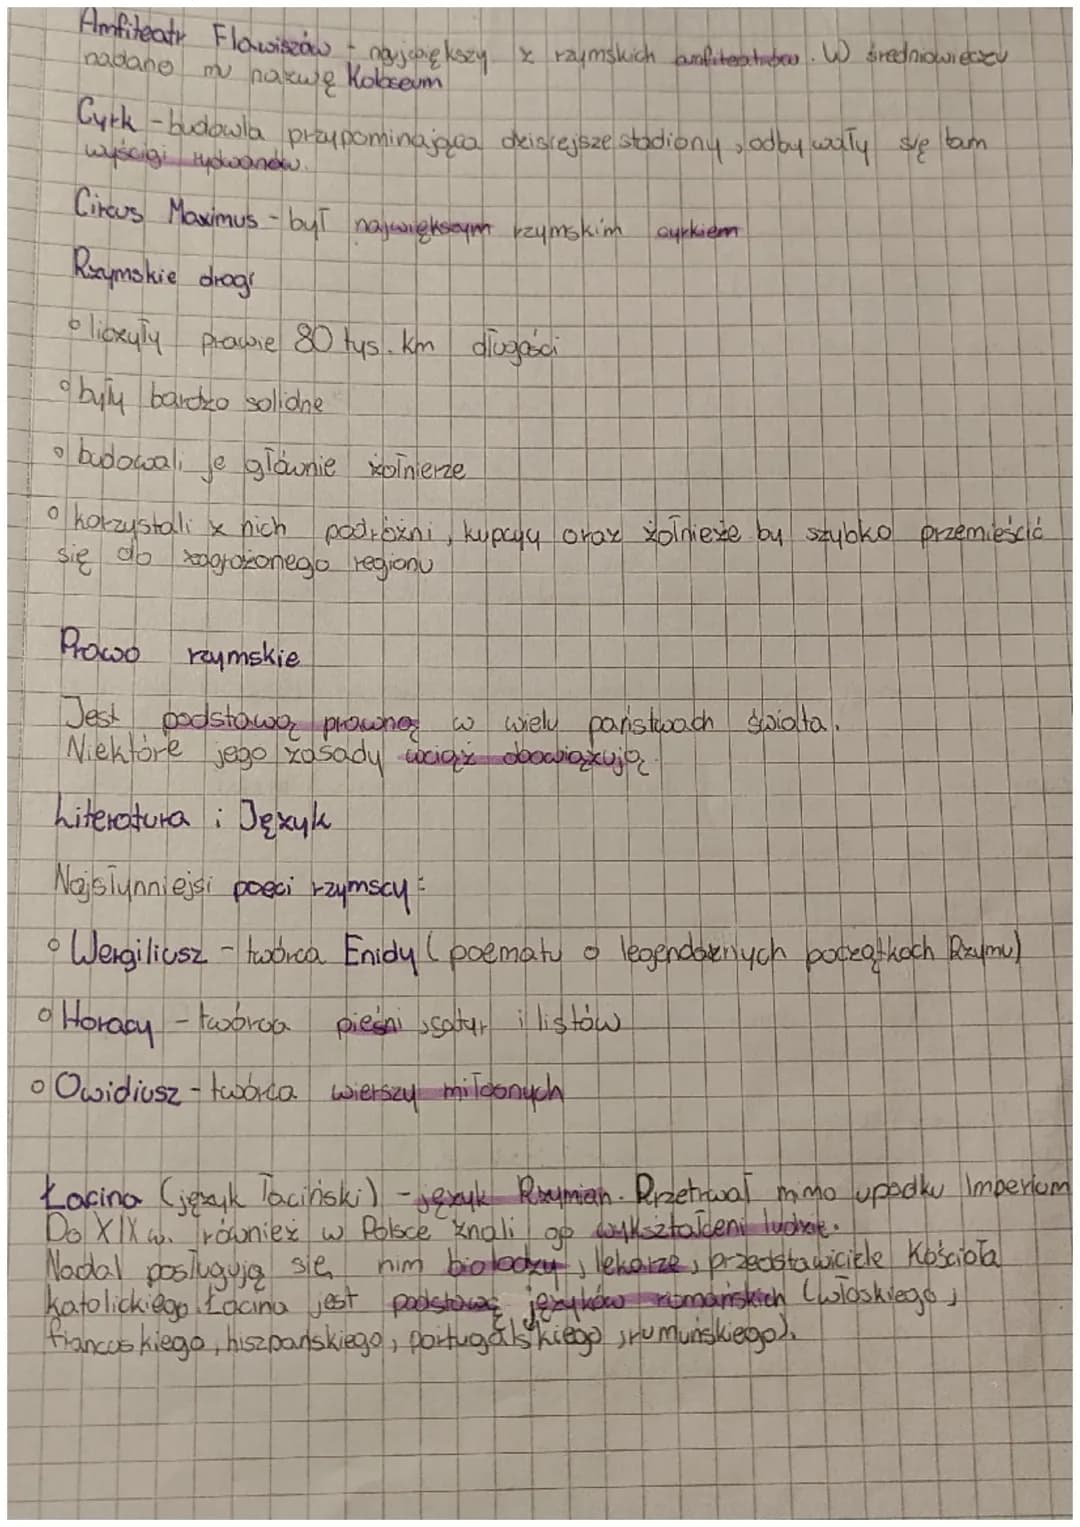 Amfiteatr Flawiszów - największy z rzymskich amfiteatrów. W średniowieczu
nadano mu nazwę Koloseum
Cyrk - budowla przypominająca dzisiejsze stadiony, odbywały się tam
wyścigi rydwanów.
Circus Maximus - był największym rzymskim cyrkiem
Rzymskie drogi
liczyły prawie 80 tys. km długości
były bardzo solidne
budowali je głównie żołnierze
korzystali z nich podróżni, kupcy oraz żołnieże by szybko przemieścić
się do zagrożonego regionu
Prawo rzymskie
Jest podstawą prawną w wielu państwach świata.
Niektóre jego zasady wciąż obowiązują.
Literatura i Język
Najsłynniejsi poeci rzymscy:
Wergiliusz - twórca Enidy (poematu o legendarnych początkach Rzymu)
Horacy - twórca pieśni, satyr i listów
Owidiusz - twórca wierszy miłosnych
Łacina (język łaciński) - język Rzymian. Przetrwał mimo upadku Imperium
Do XIX w. również w Polsce znali go wykształceni ludzie.
Nadal posługują się nim biolodzy, lekarze, przedstawiciele Kościoła
katolickiego. Łacina jest podstawą języków romańskich (włoskiego,
francuskiego, hiszpańskiego, portugalskiego, rumuńskiego).